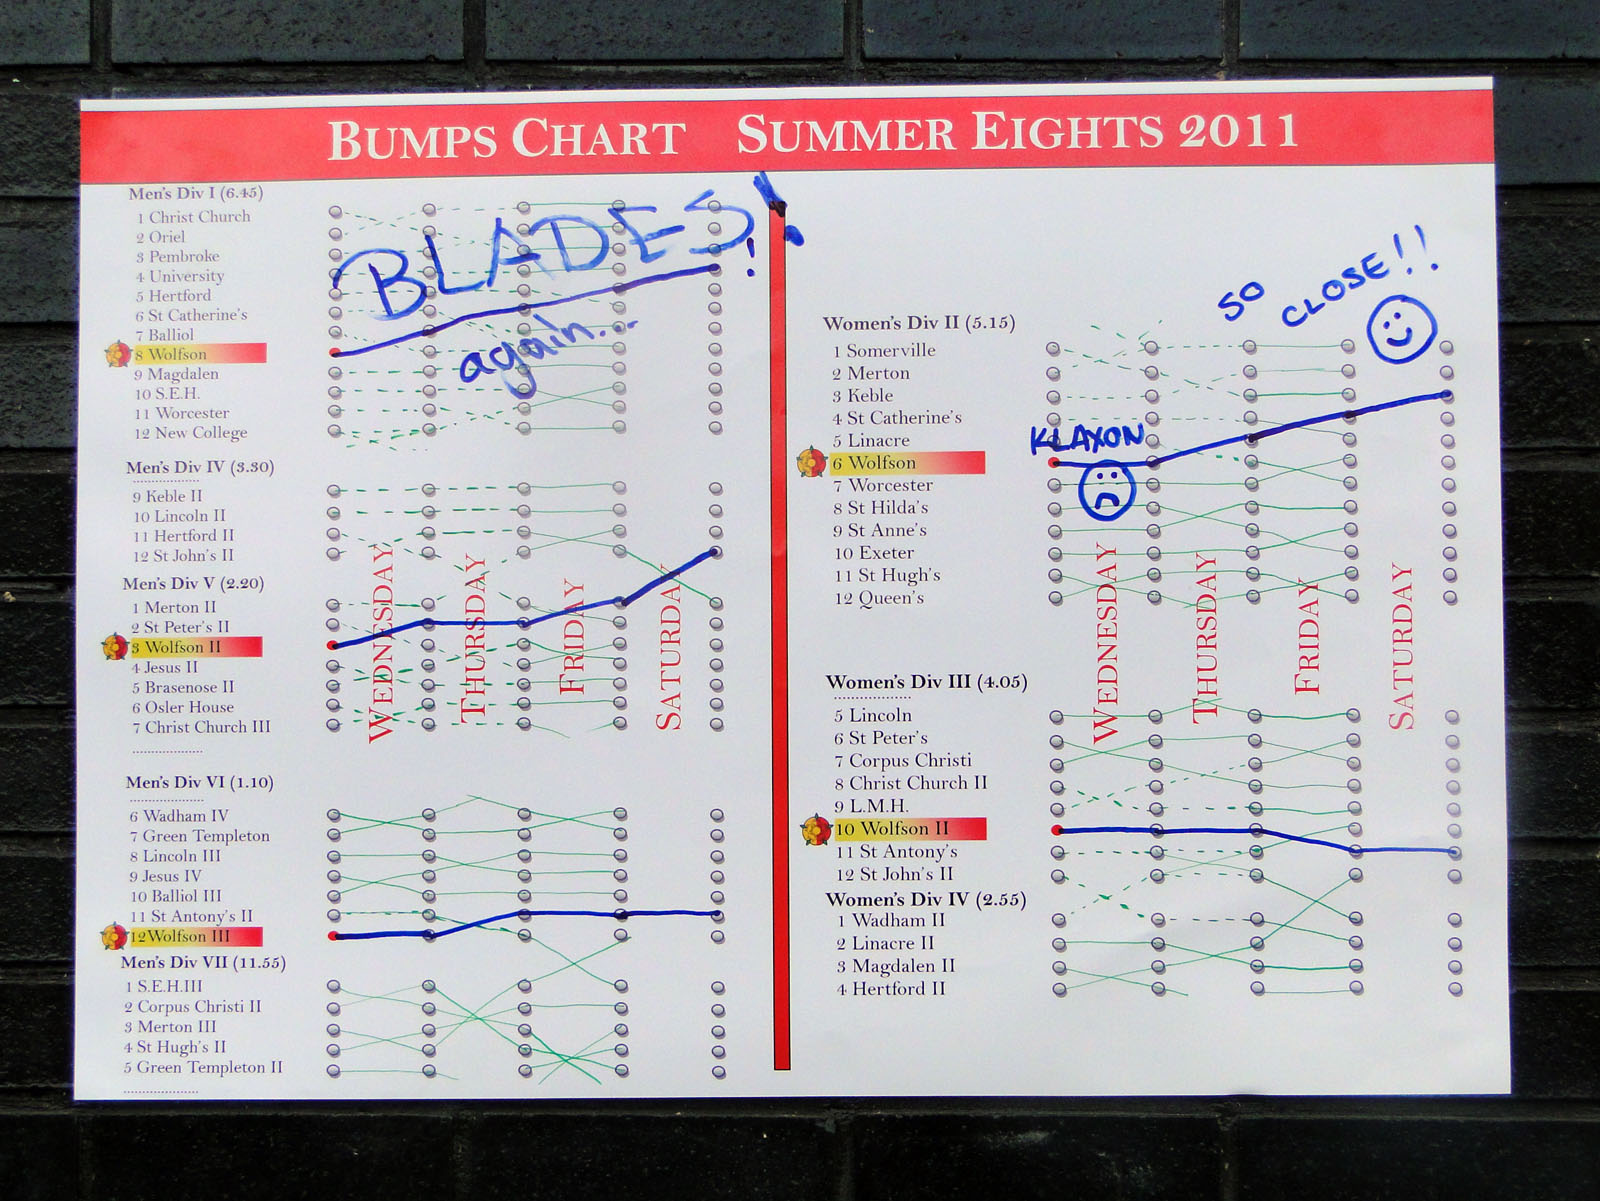 BUMPS CHART SUMMER EIGHTS 2011
Men's Div I (6.45)
1 Christ Church
2 Oriel
3 Pembroke
4 University
5 Hertford
6 St Catherine's
7 Balliol
8 Wolfson
9 Magdalen
10 S.E.H.
11 Worcester
12 New College
BLADES!
!
again...
Men's Div IV (3.30)
9 Keble II
10 Lincoln II
11 Hertford II
12 St John's II
Men's Div V (2.20)
1 Merton II
2 St Peter's II
3 Wolfson II
4 Jesus II
5 Brasenose II
6 Osler House
7 Christ Church III
WEDNESDAY
THURSDAY
FRIDAY
SATURDAY
Men's Div VI (1.10)
6 Wadham IV
7 Green Templeton
8 Lincoln III
9 Jesus IV
10 Balliol III
11 St Antony's II
12Wolfson III
Men's Div VII (11.55)
1 S.E.H.III
2 Corpus Christi II
3 Merton III
4 St Hugh's II
5 Green Templeton II
SO CLOSE!!
Women's Div II (5.15)
1 Somerville
2 Merton
3 Keble
4 St Catherine's
5 Linacre
6 Wolfson
7 Worcester
8 St Hilda's
9 St Anne's
10 Exeter
11 St Hugh's
12 Queen's
KLAXON
WEDNESDAY
THURSDAY
FRIDAY
SATURDAY
Women's Div III (4.05)
5 Lincoln
6 St Peter's
7 Corpus Christi
8 Christ Church II
9 L.M.H.
10 Wolfson II
11 St Antony's
12 St John's II
Women's Div IV (2.55)
1 Wadham II
2 Linacre II
3 Magdalen II
4 Hertford II